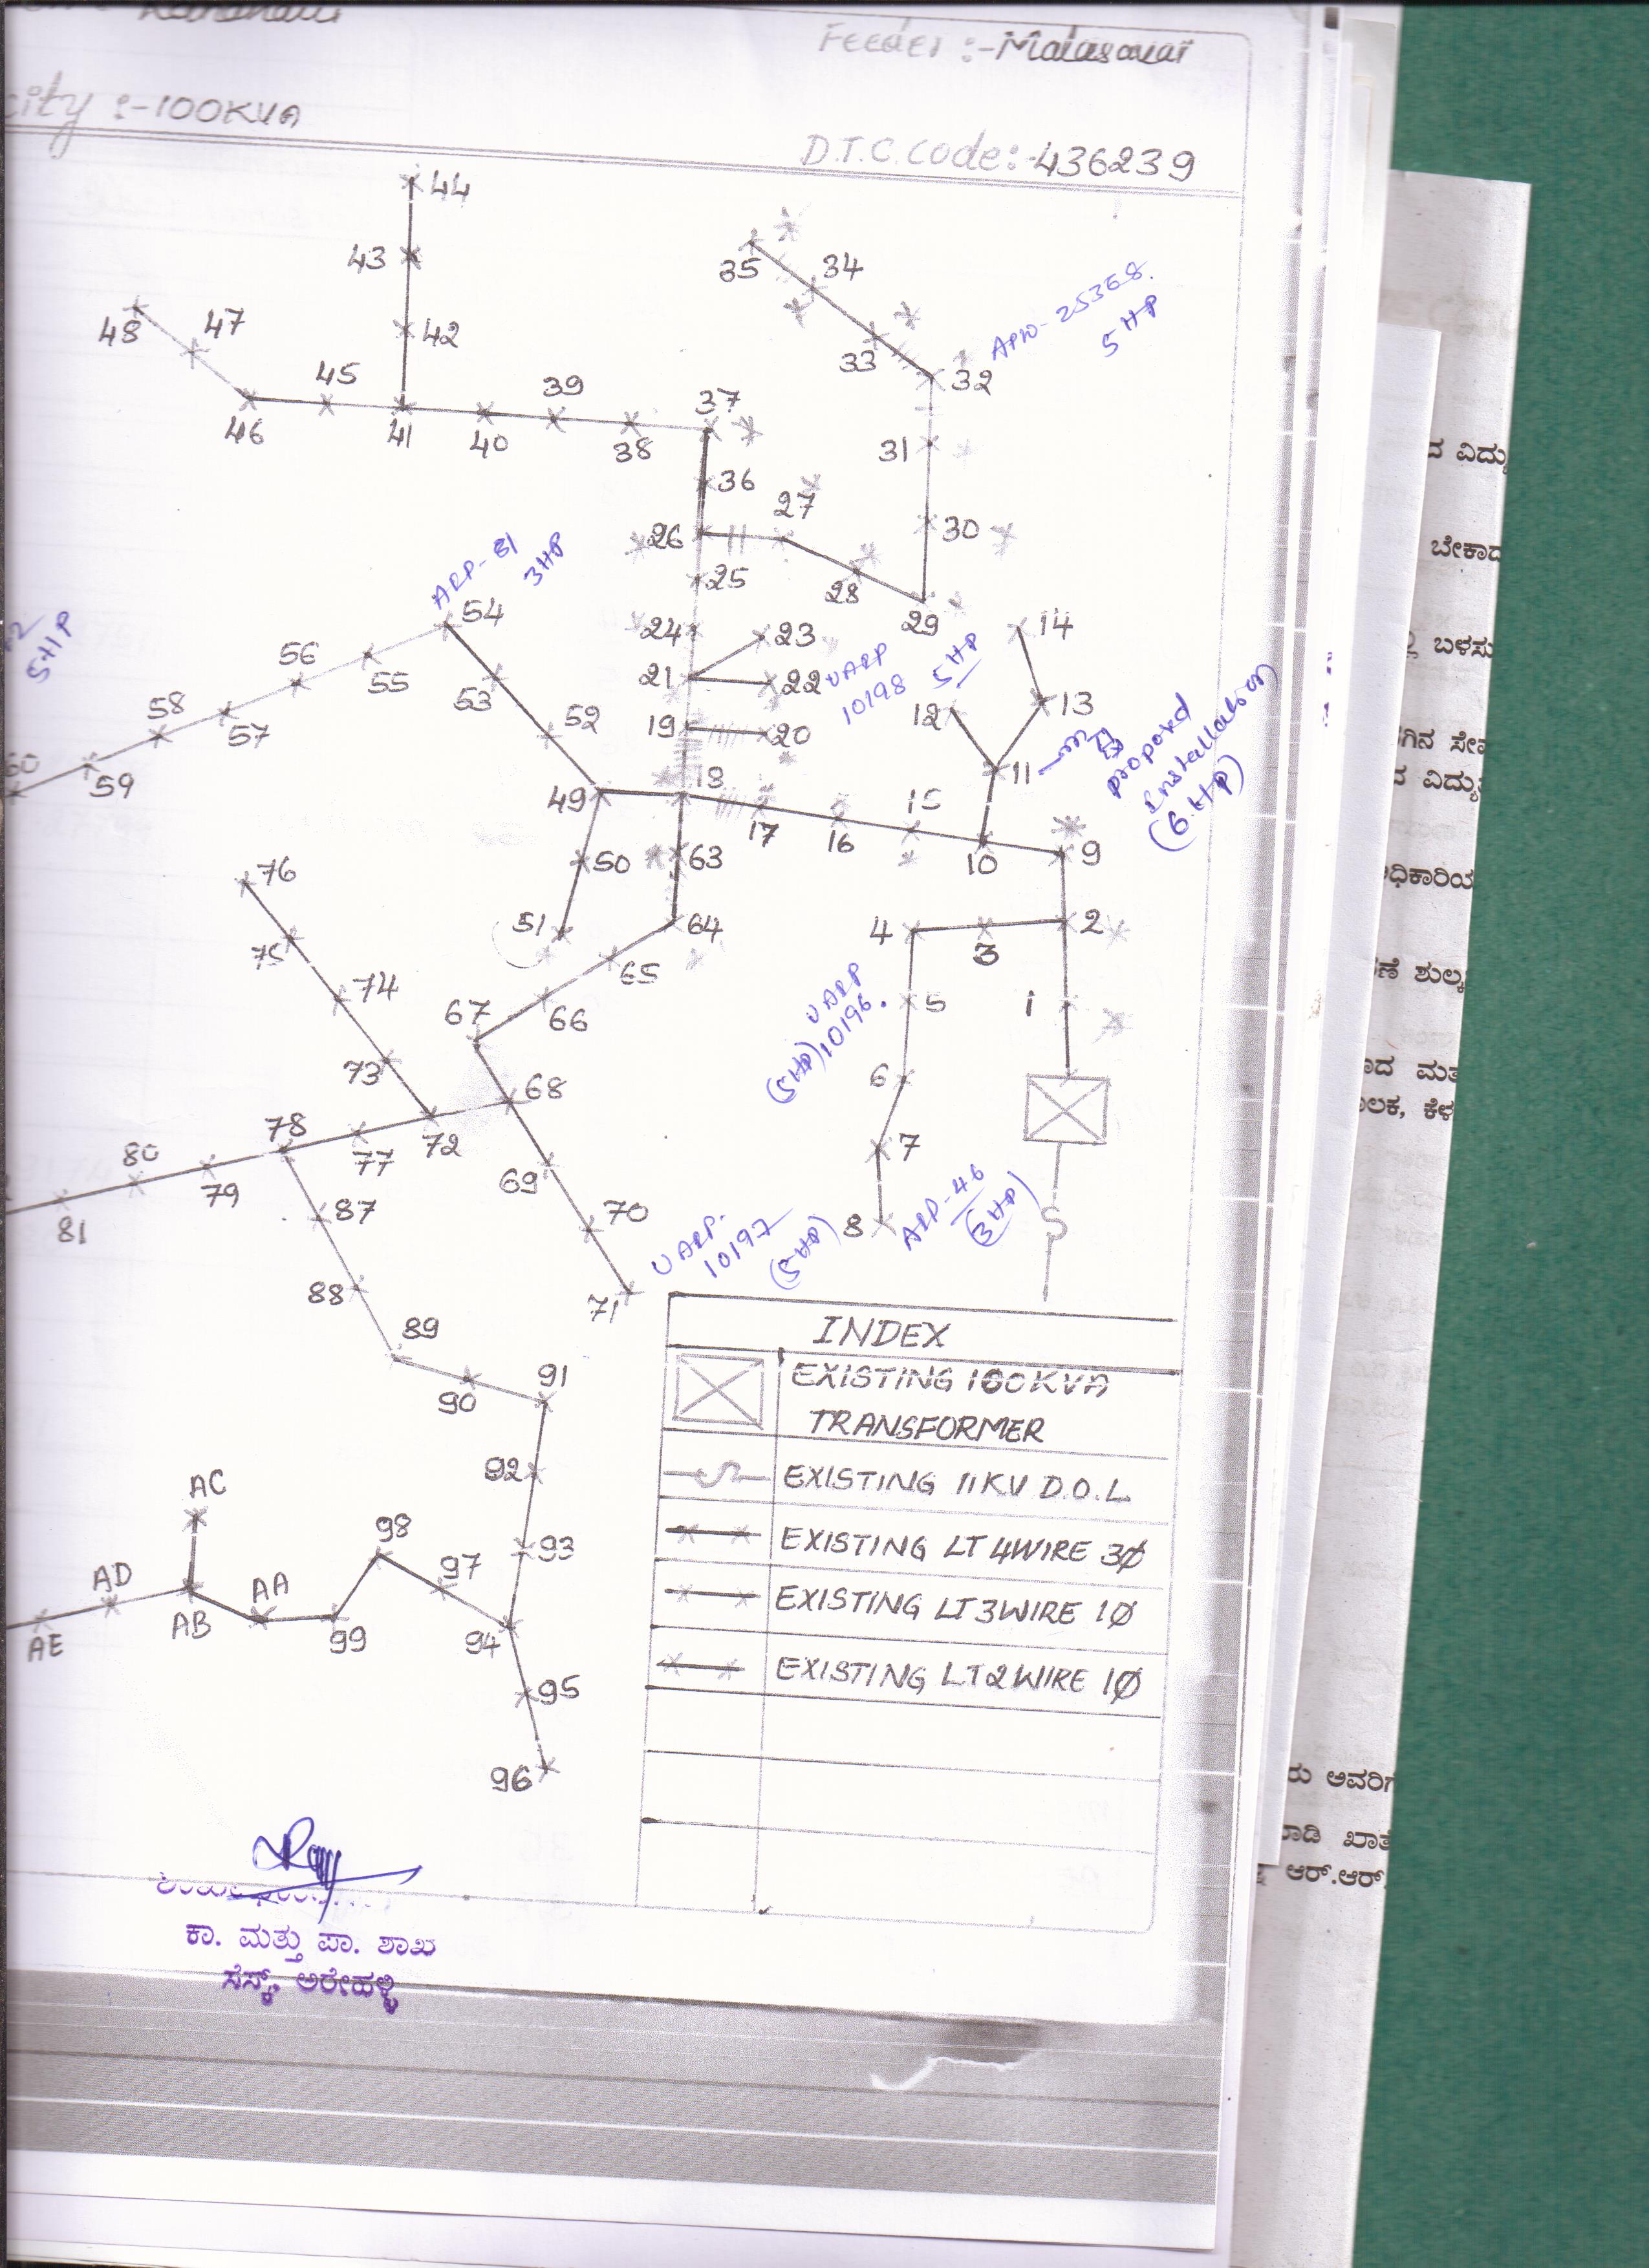 Feeder :- Malasavar
city :- 100KVA
D.T.C. Code: - 436239
44
43
42
48
47
45
46
41
40
39
38
37
35
34
33
32
31
30
36
27
26
25
28
29
24
23
22
21
19
20
18
17
16
15
10
9
14
13
12
11
54
53
52
55
56
57
58
59
60
49
50
51
63
64
65
66
67
68
69
70
71
72
73
74
75
76
77
78
79
80
81
4
3
2
5
1
6
7
8
87
88
89
90
91
92
93
94
95
96
97
98
99
AA
AB
AC
AD
AE
5 HP
ARP-81
3HP
5HP
UARP
10198
5 HP
proposed
Installation
(6 HP)
UARP
10196.
(5HP)
ARP-46
(3HP)
UARP.
10197
(5HP)
INDEX
EXISTING 100KVA
TRANSFORMER
EXISTING 11KV D.O.L
EXISTING LT 4WIRE 3Ø
EXISTING LT 3WIRE 1Ø
EXISTING LT 2WIRE 1Ø
ಕಾ. ಮತ್ತು ಪಾ. ಶಾಖೆ
ಸೆಸ್ಕ್, ಅರೇಹಳ್ಳಿ
ದ ವಿದ್ಯು
ಬೇಕಾದ
ಬಳಸು
ಗಿನ ಸೇವ
ದ ವಿದ್ಯು
ಧಿಕಾರಿಯ
ಣೆ ಶುಲ್ಕ
ಾದ ಮತ
ಾಲಕ, ಕೆಳ
ರು ಅವರಿಗೆ
ಾಡಿ ಖಾತೆ
ಆರ್.ಆರ್.